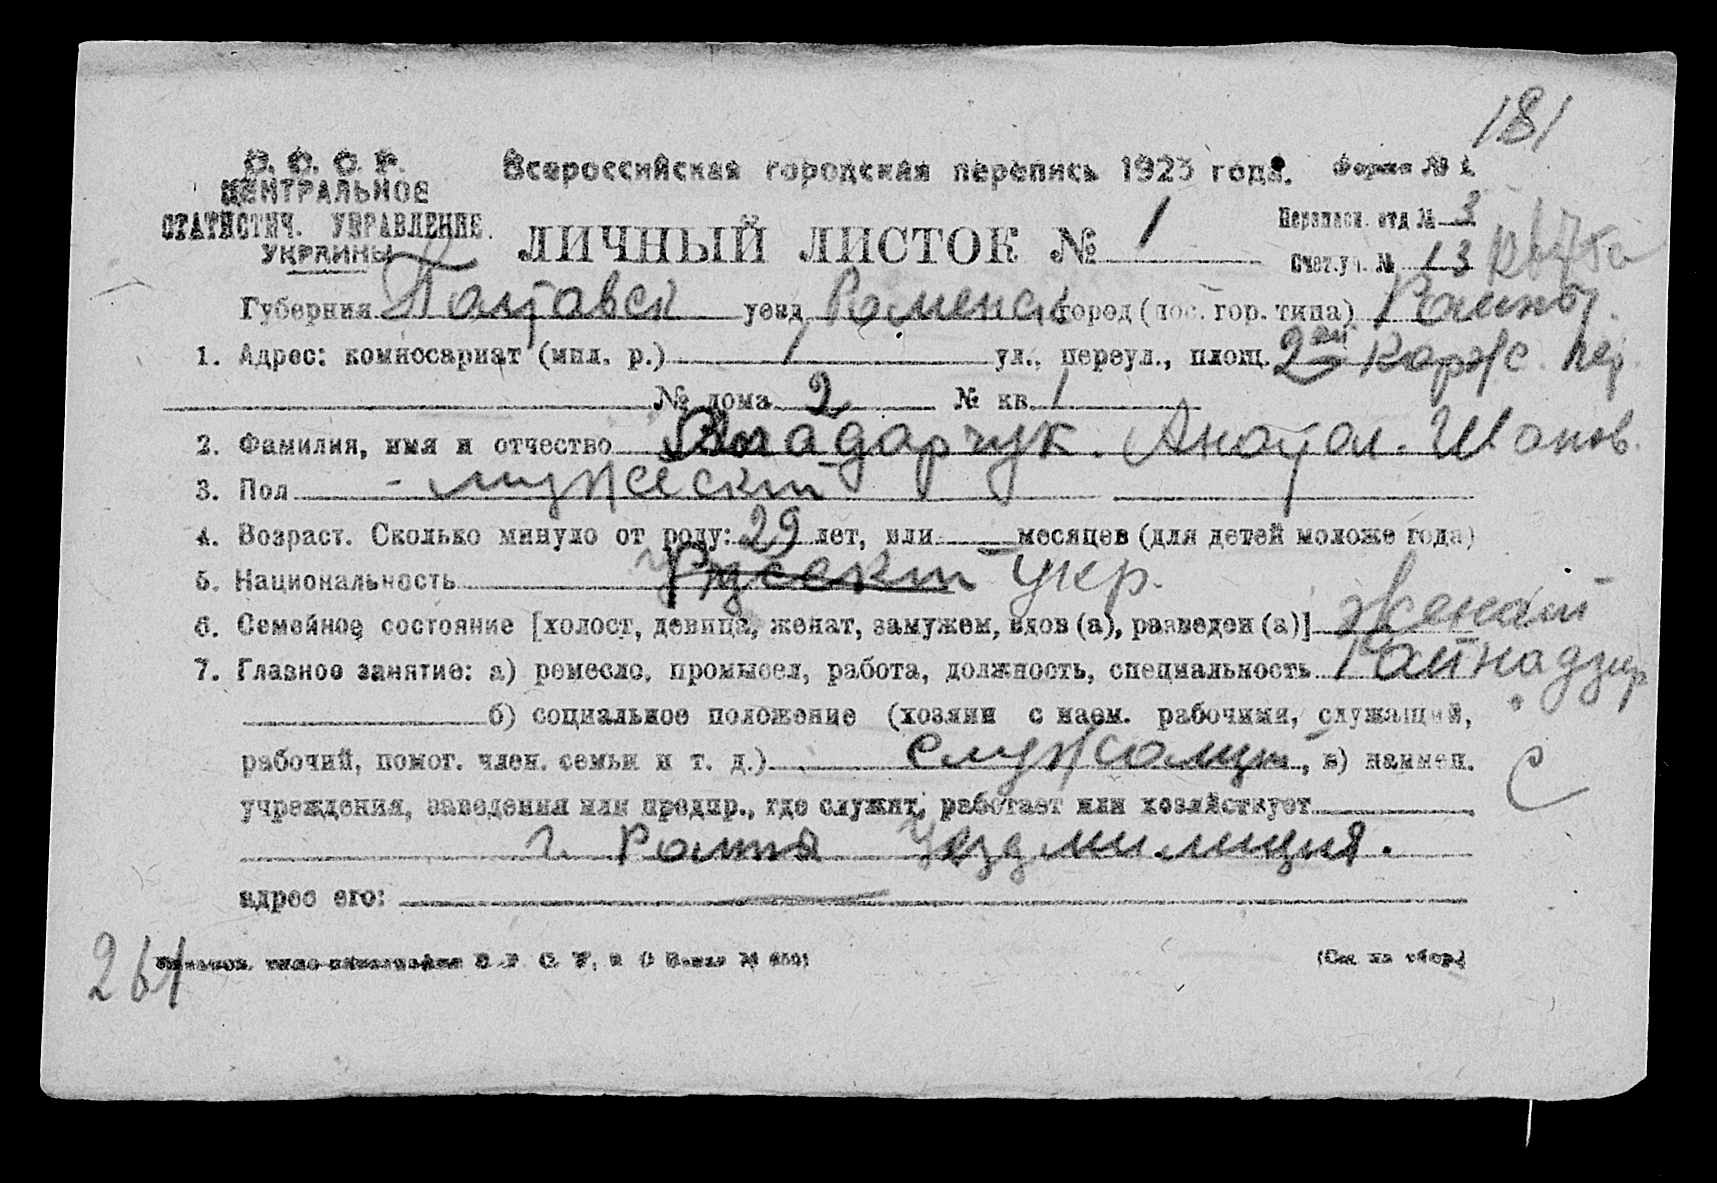 181
С. С. С. Р.
ЦЕНТРАЛЬНОЕ
СТАТИСТИЧ. УПРАВЛЕНИЕ.
УКРАИНЫ
Всероссийская городская перепись 1923 года. Форма № 1.
ЛИЧНЫЙ ЛИСТОК № 1
Переписн. отд № 3
Счет.уч. № 13
Губерния Полтавск уезд Роменск город (пос. гор. типа) Ромны
1. Адрес: комиосариат (мил. р.) 1 ул., переул., площ. 2ой Корж. пер.
№ дома 2 № кв. 1
2. Фамилия, имя и отчество Анатол.
3. Пол - мужеский
4. Возраст. Сколько минуло от роду: 29 лет, или — месяцев (для детей моложе года)
5. Национальность Русский укр.
6. Семейное состояние [холост, девица, женат, замужем, вдов (а), разведен (а)] женатый
7. Главное занятие: а) ремесло, промысел, работа, должность, специальность Райнадзир.
б) социальное положение (хозяин с наем. рабочими, служащий,
рабочий, помог. член. семьи и т. д.) служащий, в) наимен.
учреждения, заведения или предпр., где служит, работает или хозяйствует
С
г. Ромны Уездмилиция.
адрес его: —
261
(См. на обор.)